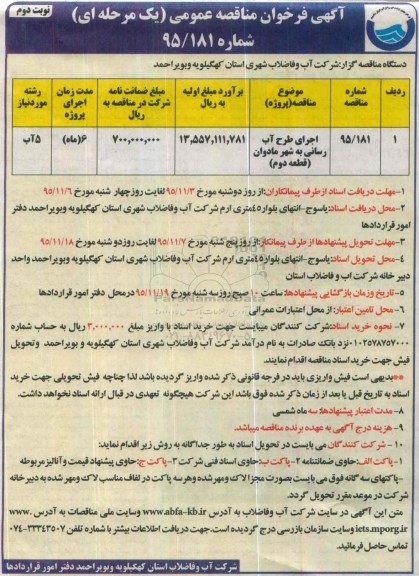 آگهی فرخوان مناقصه عمومی (یک مرحله ای)
نوبت دوم
شماره ۹۵/۱۸۱
دستگاه مناقصه گزار:شرکت آب وفاضلاب شهری استان کهگیلویه وبویراحمد
ردیف شماره مناقصه موضوع مناقصه(پروژه) برآورد مبلغ اولیه به ریال مبلغ ضمانت نامه شرکت در مناقصه به ریال مدت زمان اجرای پروژه رشته موردنیاز
۱ ۹۵/۱۸۱ اجرای طرح آب رسانی به شهر مادوان (قطعه دوم) ۱۳,۵۵۷,۱۱۱,۷۸۱ ۷۰۰,۰۰۰,۰۰۰ ۶(ماه) ۵آب
۱-مهلت دریافت اسناد ازطرف پیمانکاران:از روز دوشنبه مورخ ۹۵/۱۱/۳ لغایت روزچهار شنبه مورخ ۹۵/۱۱/۶
۲-محل دریافت اسناد:یاسوج-انتهای بلوار۴۵متری ارم شرکت آب وفاضلاب شهری استان کهگیلویه وبویراحمد دفتر
امور قراردادها
۳-مهلت تحویل پیشنهادها از طرف پیمانکاران:ازروز پنج شنبه مورخ ۹۵/۱۱/۷ لغایت روزدو شنبه مورخ ۹۵/۱۱/۱۸
۴-محل تحویل اسناد:یاسوج-انتهای بلوار۴۵متری ارم شرکت آب وفاضلاب شهری استان کهگیلویه وبویراحمد واحد
دبیر خانه شرکت اب و فاضلاب استان
۵-تاریخ وزمان بازگشایی پیشنهادها: ساعت ۱۰ صبح روزسه شنبه مورخ ۹۵/۱۱/۱۹ درمحل دفتر امور قراردادها
۶-محل تامین اعتبار: از محل اعتبارات عمرانی
۷- نحوه خرید اسناد:شرکت کنندگان میبایست جهت خرید اسناد با واریز مبلغ ۳,۰۰۰,۰۰۰ ریال به حساب شماره
۰۱۰۲۵۷۸۷۵۷۰۰۰نزد بانک صادرات به نام درآمد شرکت آب وفاضلاب شهری استان کهگیلویه و بویراحمد وتحویل
فیش جهت خرید اسناد مناقصه اقدام نمایند.
**بدیهی است فیش واریزی باید در فرجه قانونی ذکر شده واریز گردیده باشد لذا چناچه فیش تحویلی جهت خرید
اسناد به تاریخ قبل یا بعد از زمان ذکر شده فوق باشد این شرکت هیچگونه تعهدی در قبال ارائه اسناد نخواهد داشت.
۸-مدت اعتبار پیشنهادها: سه ماه شمسی
۹- هزینه درج آگهی به عهده برنده مناقصه میباشد.
۱۰- شرکت کنندگان می بایست در تحویل اسناد به طور جداگانه به روش زیر اقدام نماید:
۱-پاکت الف:حاوی ضمانتنامه ۲-پاکت ب:حاوی اسناد فنی شرکت ۳-پاکت ج:حاوی پیشنهاد قیمت و آنالیز مربوطه
-پاکتهای سه گانه فوق می بایست بصورت مجزا لاک ومهر شده وهر سه پاکت در لفاف مناسب لاک ومهر شده به دبیر خانه
شرکت در موعد مقرر تحویل گردد.
متن این آگهی در سایت شرکت آب وفاضلاب به آدرس www.abfa-kb.ir وسایت ملی مناقصات به آدرس www.
iets.mporg.ir وسایت سازمان بازرسی درج گردیده است.جهت دریافت اطلاعات بیشتر با شماره تلفن ۳۳۳۴۳۵۰۷-۰۷۴
تماس حاصل فرمائید.
شرکت آب وفاضلاب استان کهگیلویه وبویراحمد دفتر امور قراردادها